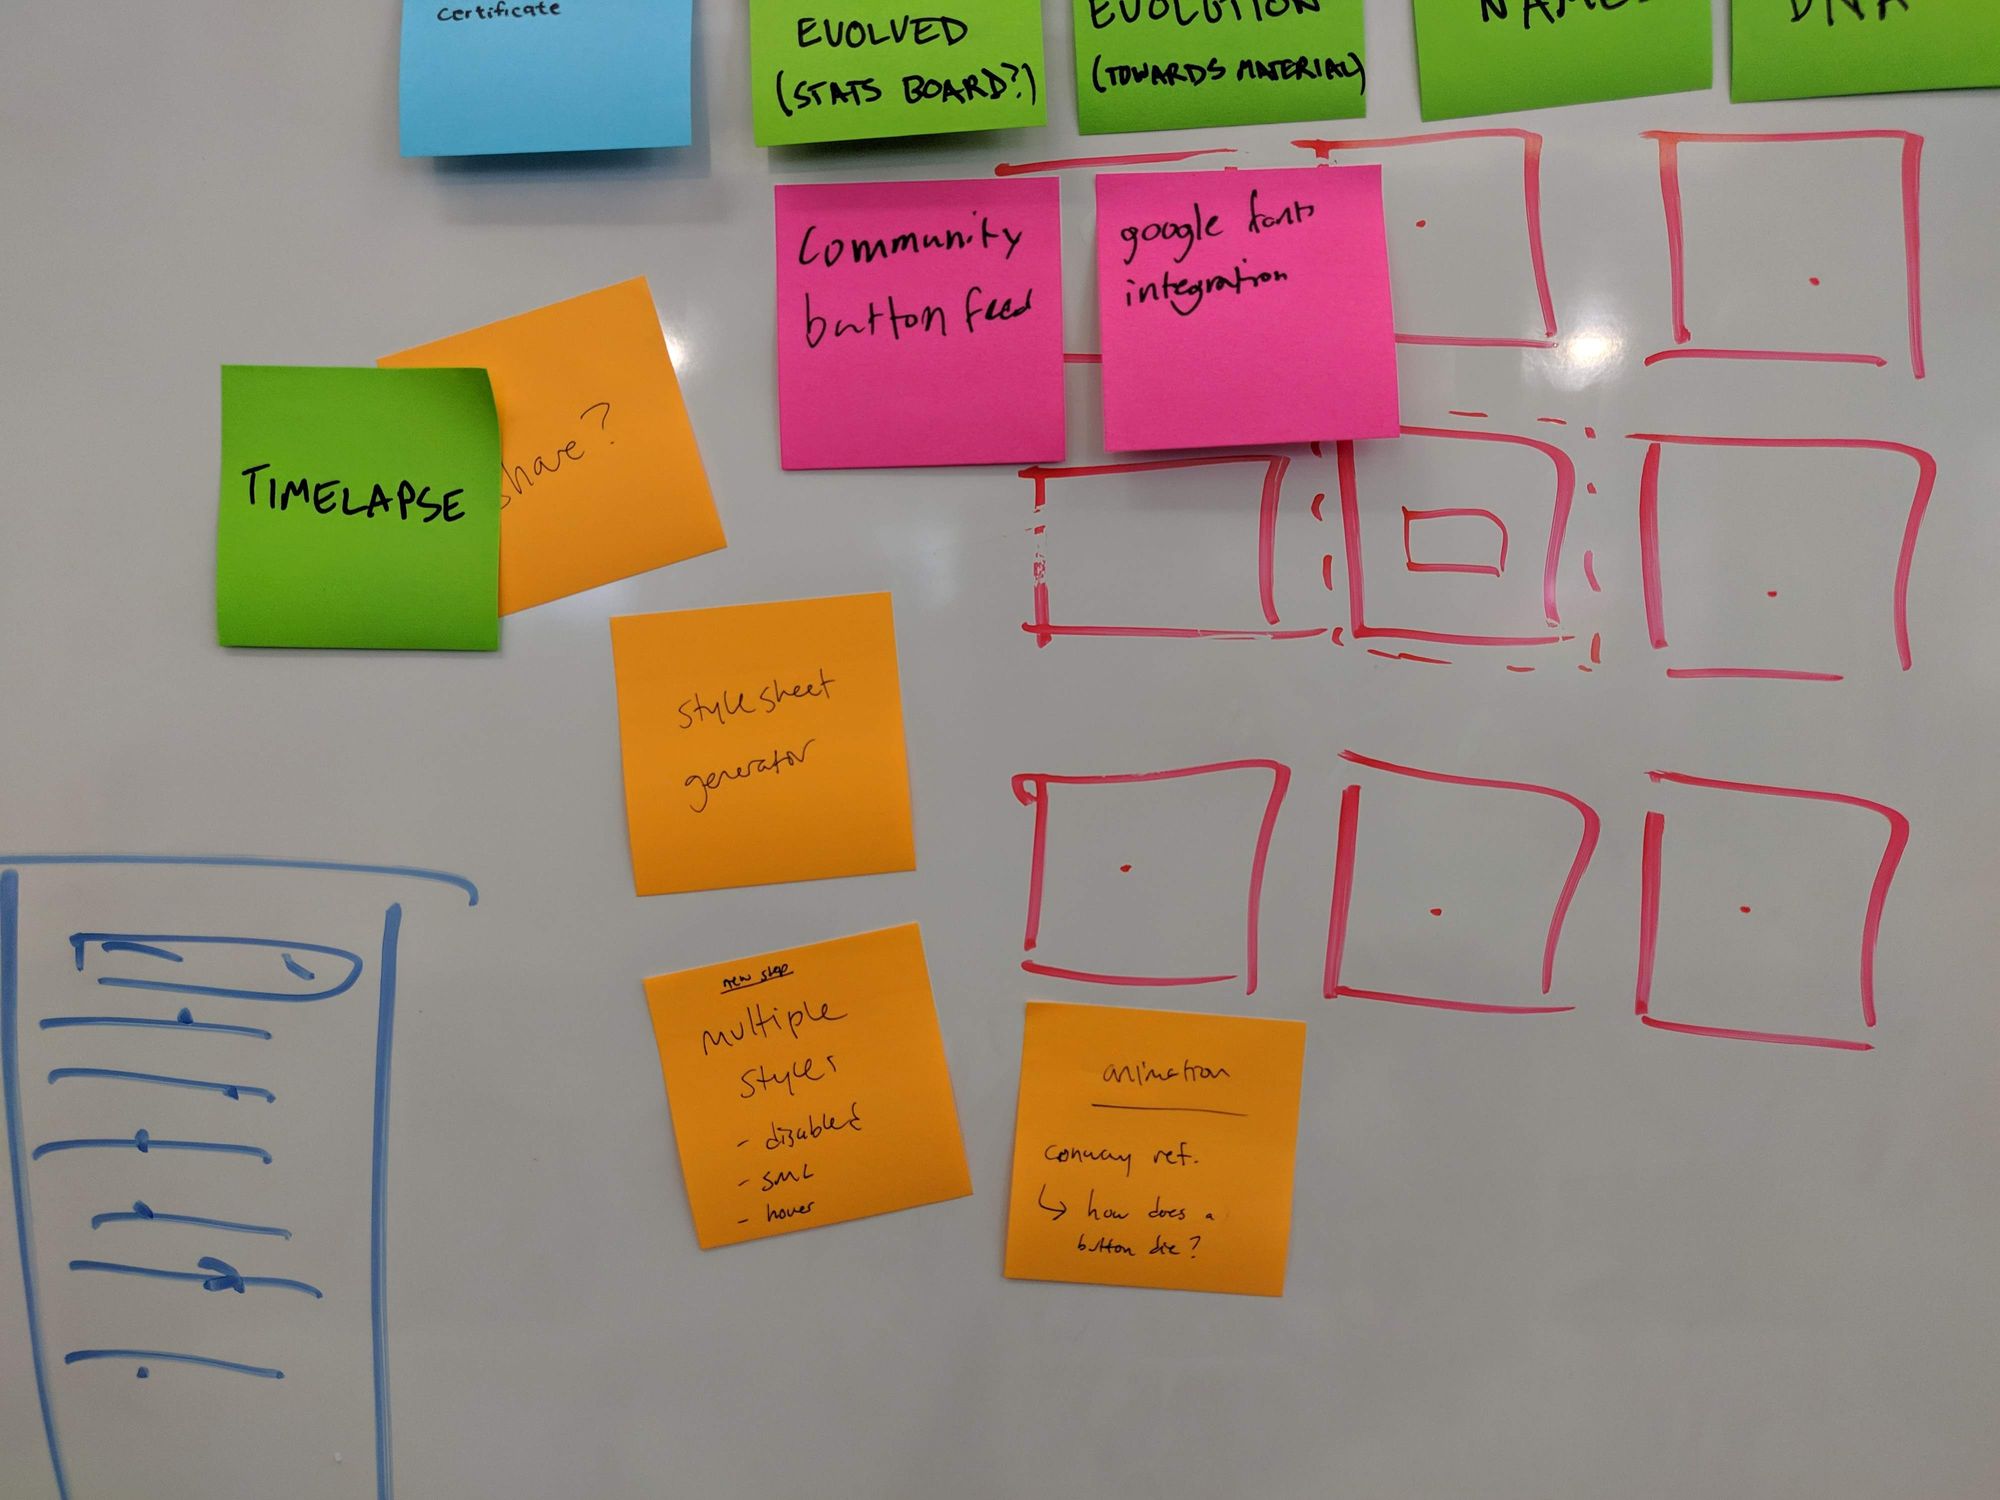 certificate
EVOLVED
(STATS BOARD?)
EVOLUTION
(TOWARDS MATERIAL)
NAMES
DNA
Community
button feed
google fonts
integration
TIMELAPSE
share?
stylesheet
generator
new step
multiple
styles
- disabled
- SML
- hover
animation
conway ref.
↳ how does a
button die?